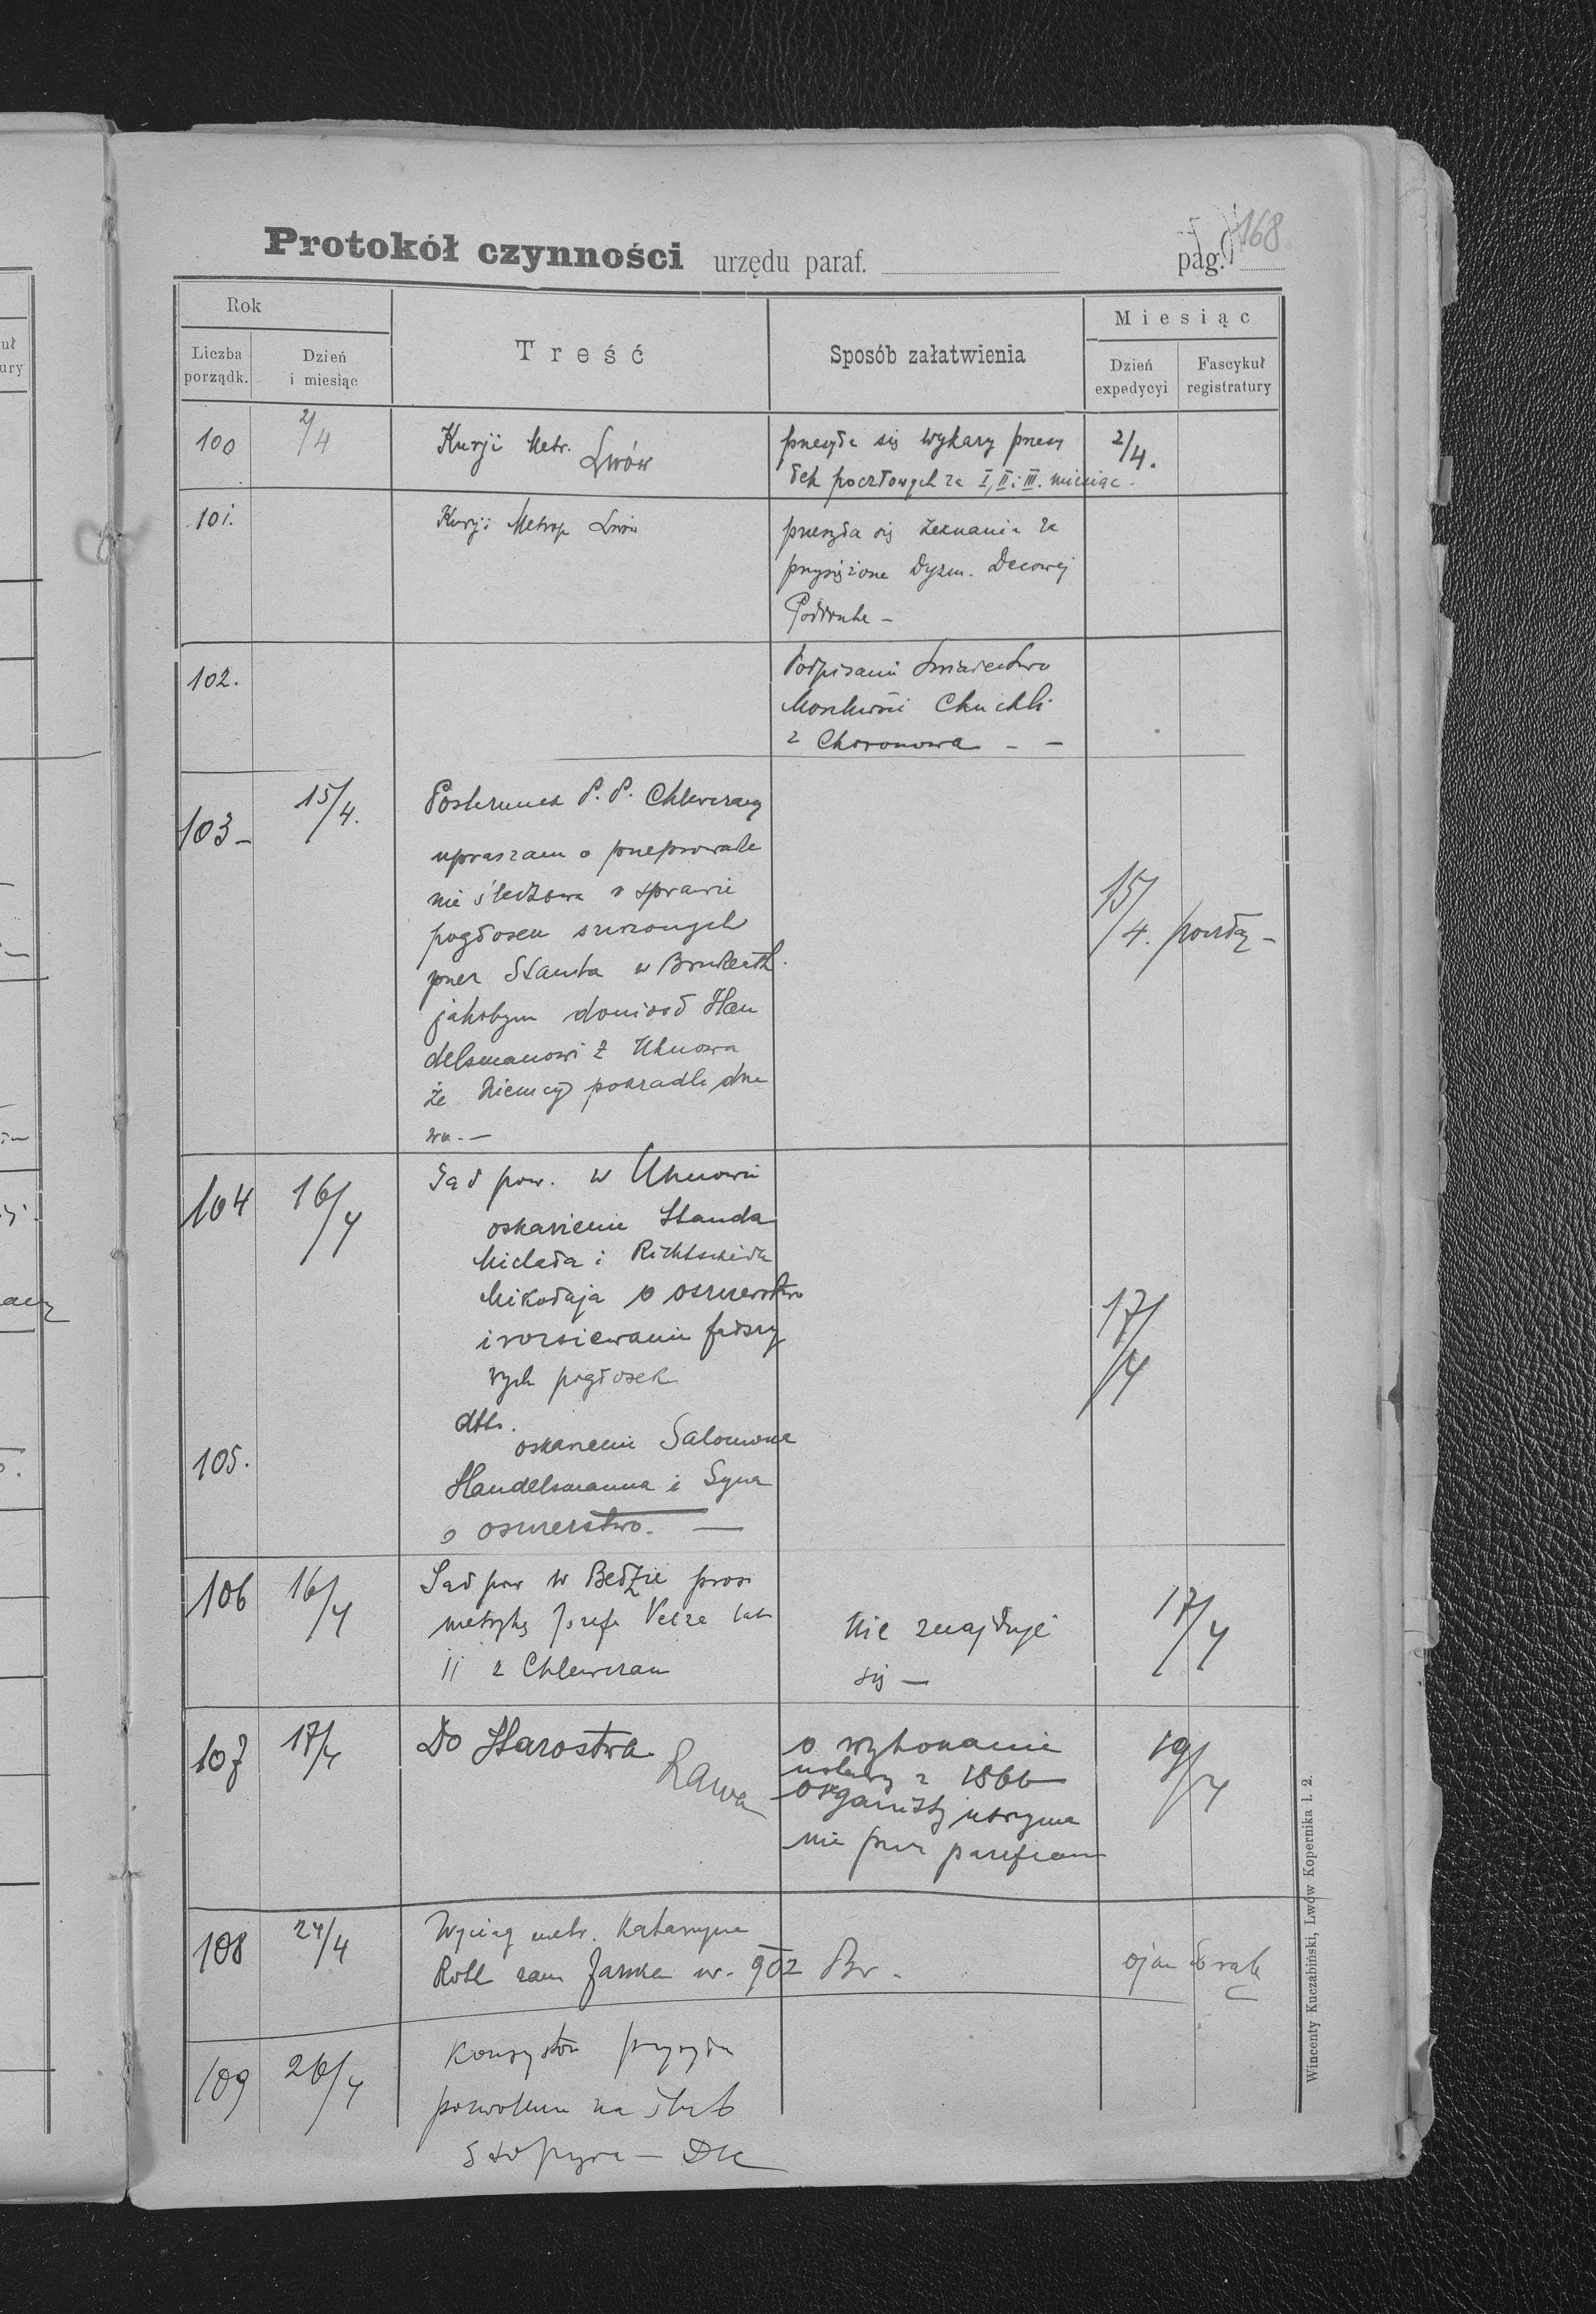 Protokół czynności urzędu paraf. pag. 168
Rok
Liczba porządk.
Dzień i miesiąc
Treść
Sposób załatwienia
Miesiąc
Dzień expedycyi
Fascykuł registratury
100 2/4 Kurji Metr. Lwów
przesyła się wykazy przesy
łek pocztowych za I, II i III. miesiąc.
2/4.
101. Kurji Metrop Lwów
przesyła się zeznania za
przysiężone Dyzm. Decowej
102.
Podpisanie świadectwa
Chuchli
z Choronowa - -
103- 15/4. Posterunek P. P. Chlewczany
upraszam o przeprowadze
nie śledztwa w sprawie
pogłosek szerzonych
przez Standa w Brukenth.
jakobym doniosł Han
delsmanowi z Uhnowa
że Niemcy pokradli drze
wa. -
15/4. pocztą -
104 16/4 Sąd pow. w Uhnowie
oskarżenie Standa
Michała i Richtscheida
Mikołaja o oszczerstwo
i rozsiewanie fałszy
wych pogłosek
17/4
105. dtto.
oskarżenie Salomona
Handelsmanna i Syna
o oszczerstwo. -
106 16/4 Sąd pow w Bełzie prosi
metrykę Józefa Veize lat
11 z Chlewczan
Nie znajduje
się -
17/4
107 17/4 Do Starostwa
Rawa
o wykonanie
ustawy z 1866
organisty utrzyma
nie przez parafian
19/4
108 24/4 Wyciąg metr. Katarzyna
Roth zam Jaruka nr. 902 Br.
109 26/4 Konsystorz przysyła
pozwolenie na ślub
Wincenty Kuczabiński, Lwów Kopernika l. 2.